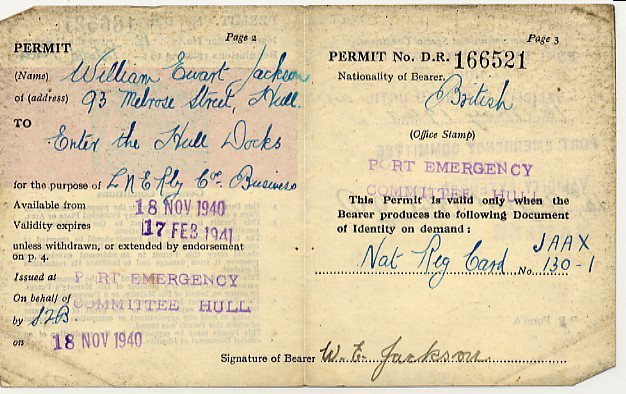 Page 2
PERMIT
(Name) William Ewart Jackson
of (address) 93 Melrose Street, Hull.
TO
Enter the Hull Docks
for the purpose of L N E Rly Co. Business
Available from 18 NOV 1940
Validity expires 17 FEB 1941
unless withdrawn, or extended by endorsement
on p. 4.
Issued at PORT EMERGENCY
On behalf of COMMITTEE HULL
by
on 18 NOV 1940
Page 3
PERMIT No. D.R. 166521
Nationality of Bearer.
British
(Office Stamp)
PORT EMERGENCY
COMMITTEE HULL
This Permit is valid only when the
Bearer produces the following Document
of Identity on demand :
JAAX
Nat Reg Card No. 130-1
Signature of Bearer W. E. Jackson